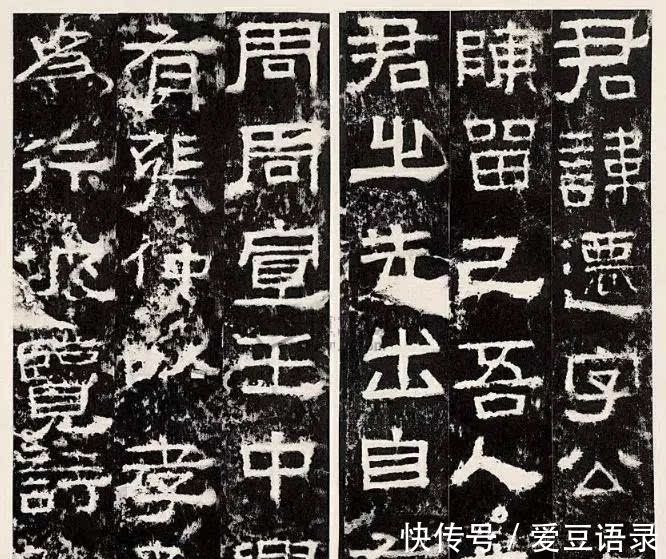 君諱遷字公
陳留己吾人
君之先出自
周周宣王中
有張仲以孝
為行披覽詩
快传号 / 爱豆语录